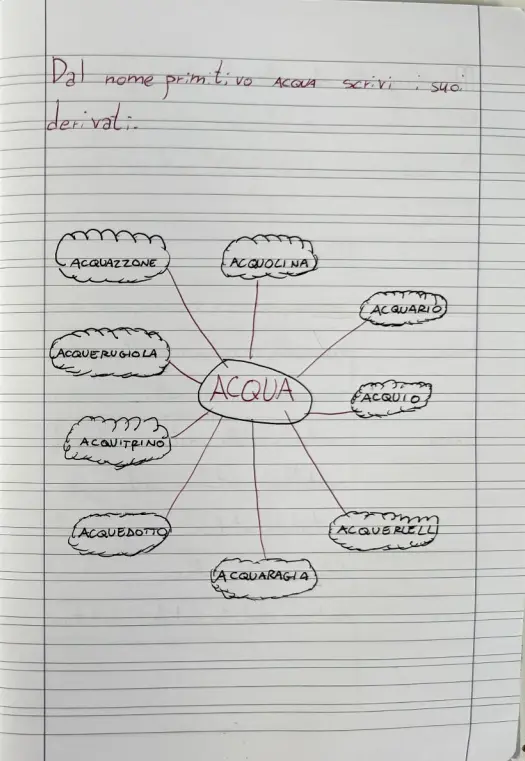 Dal nome primitivo ACQUA scrivi i suoi
derivati.
ACQUAZZONE
ACQUOLINA
ACQUARIO
ACQUERUGIOLA
ACQUA
ACQUIO
ACQUITRINO
ACQUEDOTTO
ACQUERLELL
ACQUARAGIA